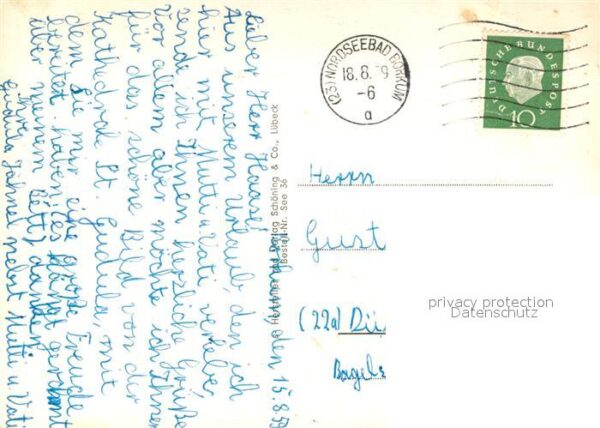 Borkum, den 15.8.59
Lieber Herr Haase!
Aus unserem Urlaub, den ich
hier mit Mutti u. Vati verlebe,
sende ich Ihnen herzliche Grüße
vor allem aber möchte ich Ihnen
für das schöne Bild von der
Kathedrale St. Gudula, mit
dem Sie mir eine große Freude
bereitet haben (es hängt gerahmt
über meinem Bett) danken.
Ihre
Gudula Jähnel nebst Mutti u. Vati
Verlag Schöning & Co., Lübeck
Bestell-Nr. See 36
(23) NORDSEEBAD BORKUM
18.8.59
-6
a
DEUTSCHE BUNDESPOST
10
Herrn
Gust
(22a) Dü
privacy protection
Datenschutz